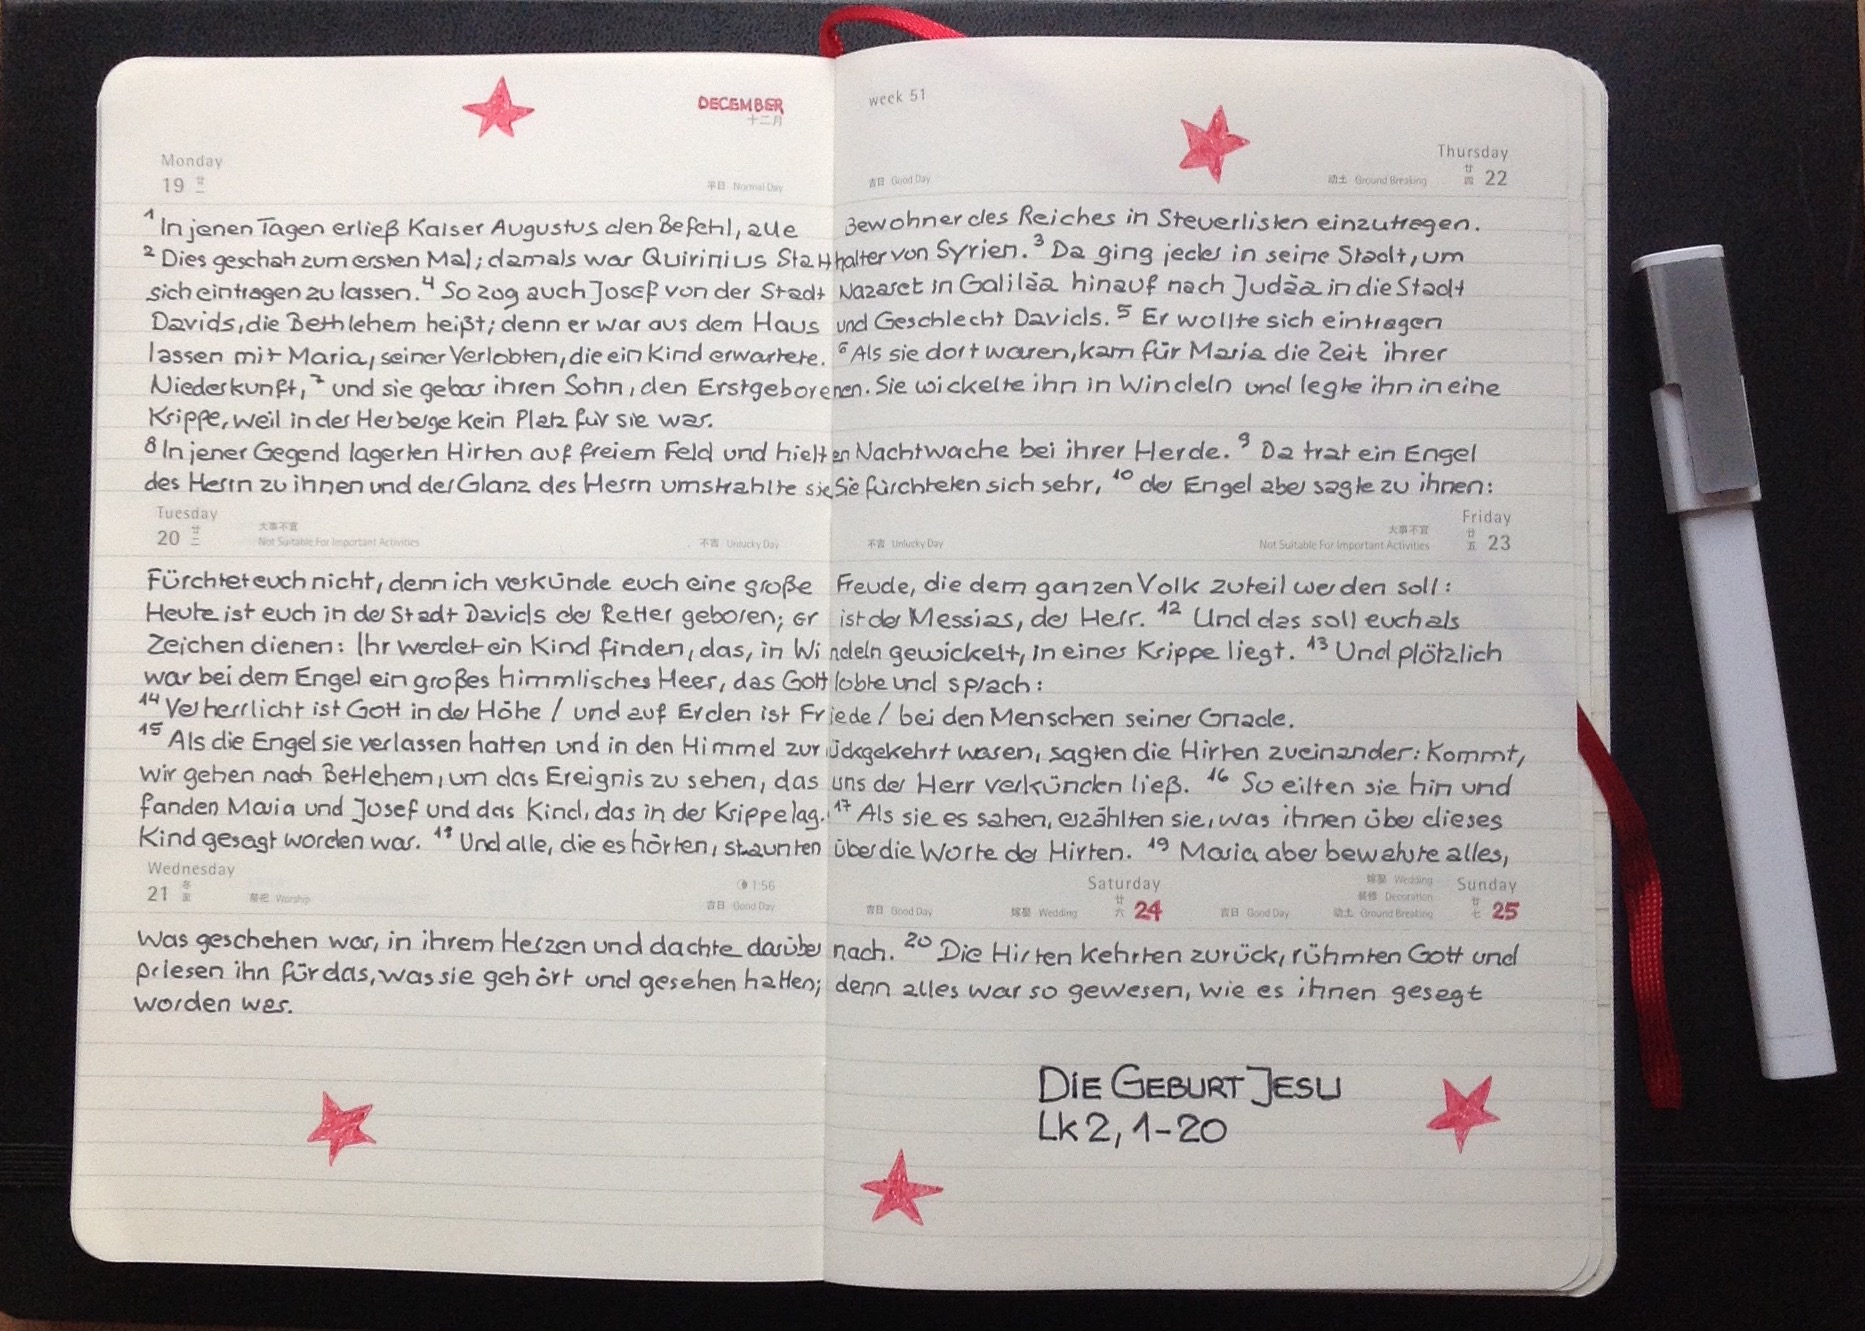 DECEMBER
十二月
week 51
Monday
19 廿一
平日 Normal Day
吉日 Good Day
动土 Ground Breaking
Thursday
廿四 22
1 In jenen Tagen erließ Kaiser Augustus den Befehl, alle Bewohner des Reiches in Steuerlisten einzutragen.
2 Dies geschah zum ersten Mal; damals war Quirinius Statthalter von Syrien. 3 Da ging jeder in seine Stadt, um
sich eintragen zu lassen. 4 So zog auch Josef von der Stadt Nazaret in Galiläa hinauf nach Judäa in die Stadt
Davids, die Bethlehem heißt; denn er war aus dem Haus und Geschlecht Davids. 5 Er wollte sich eintragen
lassen mit Maria, seiner Verlobten, die ein Kind erwartete. 6 Als sie dort waren, kam für Maria die Zeit ihrer
Niederkunft, 7 und sie gebar ihren Sohn, den Erstgeborenen. Sie wickelte ihn in Windeln und legte ihn in eine
Krippe, weil in der Herberge kein Platz für sie war.
8 In jener Gegend lagerten Hirten auf freiem Feld und hielten Nachtwache bei ihrer Herde. 9 Da trat ein Engel
des Herrn zu ihnen und der Glanz des Herrn umstrahlte sie Sie fürchteten sich sehr, 10 der Engel aber sagte zu ihnen:
Tuesday
20 廿二
大事不宜
Not Suitable For Important Activities
不吉 Unlucky Day
不吉 Unlucky Day
大事不宜
Not Suitable For Important Activities
Friday
廿五 23
Fürchtet euch nicht, denn ich verkünde euch eine große Freude, die dem ganzen Volk zuteil werden soll:
Heute ist euch in der Stadt Davids der Retter geboren; er ist der Messias, der Herr. 12 Und das soll euch als
Zeichen dienen: Ihr werdet ein Kind finden, das, in Windeln gewickelt, in einer Krippe liegt. 13 Und plötzlich
war bei dem Engel ein großes himmlisches Heer, das Gott lobte und sprach:
14 Verherrlicht ist Gott in der Höhe / und auf Erden ist Friede / bei den Menschen seiner Gnade.
15 Als die Engel sie verlassen hatten und in den Himmel zurückgekehrt waren, sagten die Hirten zueinander: Kommt,
wir gehen nach Betlehem, um das Ereignis zu sehen, das uns der Herr verkünden ließ. 16 So eilten sie hin und
fanden Maria und Josef und das Kind, das in der Krippe lag. 17 Als sie es sahen, erzählten sie, was ihnen über dieses
Kind gesagt worden war. 18 Und alle, die es hörten, staunten über die Worte der Hirten. 19 Maria aber bewahrte alles,
Wednesday
21 冬至
祭祀 Worship
1:56
吉日 Good Day
吉日 Good Day
嫁娶 Wedding
Saturday
廿六 24
吉日 Good Day
嫁娶 Wedding
装修 Decoration
动土 Ground Breaking
Sunday
廿七 25
Was geschehen war, in ihrem Herzen und dachte darüber nach. 20 Die Hirten kehrten zurück, rühmten Gott und
priesen ihn für das, was sie gehört und gesehen hatten; denn alles war so gewesen, wie es ihnen gesagt
worden war.
DIE GEBURT JESU
Lk 2, 1-20